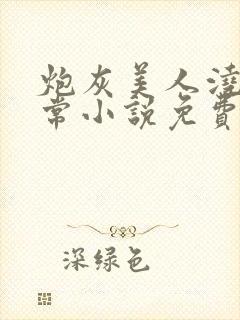 炮灰美人澆
常小説免費
深绿色